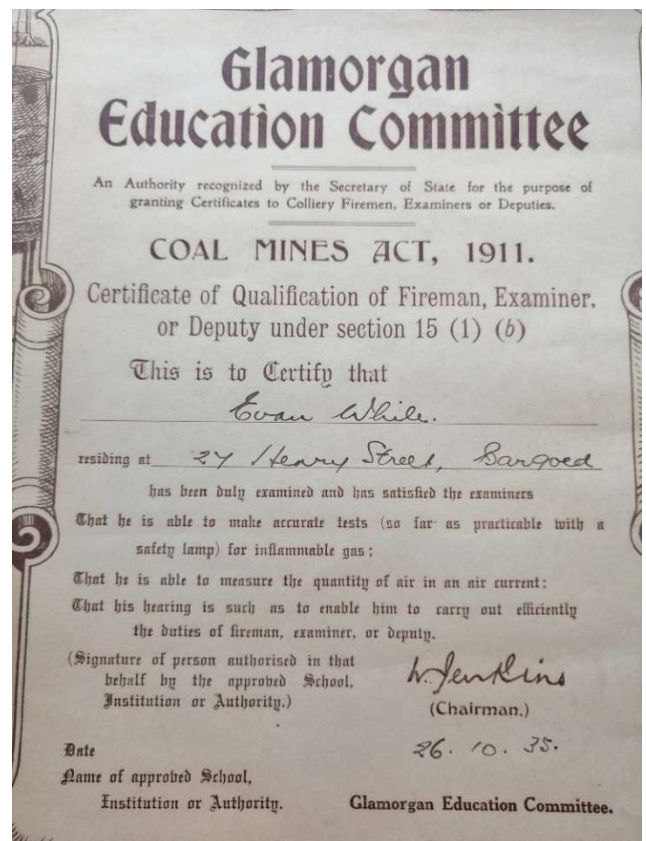 Glamorgan
Education Committee
An Authority recognized by the Secretary of State for the purpose of
granting Certificates to Colliery Firemen, Examiners or Deputies.
COAL MINES ACT, 1911.
Certificate of Qualification of Fireman, Examiner,
or Deputy under section 15 (1) (b)
This is to Certify that
Evan White.
residing at 27 Henry Street, Bargoed
has been duly examined and has satisfied the examiners
That he is able to make accurate tests (so far as practicable with a
safety lamp) for inflammable gas;
That he is able to measure the quantity of air in an air current;
That his hearing is such as to enable him to carry out efficiently
the duties of fireman, examiner, or deputy.
(Signature of person authorised in that
behalf by the approved School,
Institution or Authority.)
W. Jenkins
(Chairman.)
Date 26. 10. 35.
Name of approved School,
Institution or Authority. Glamorgan Education Committee.